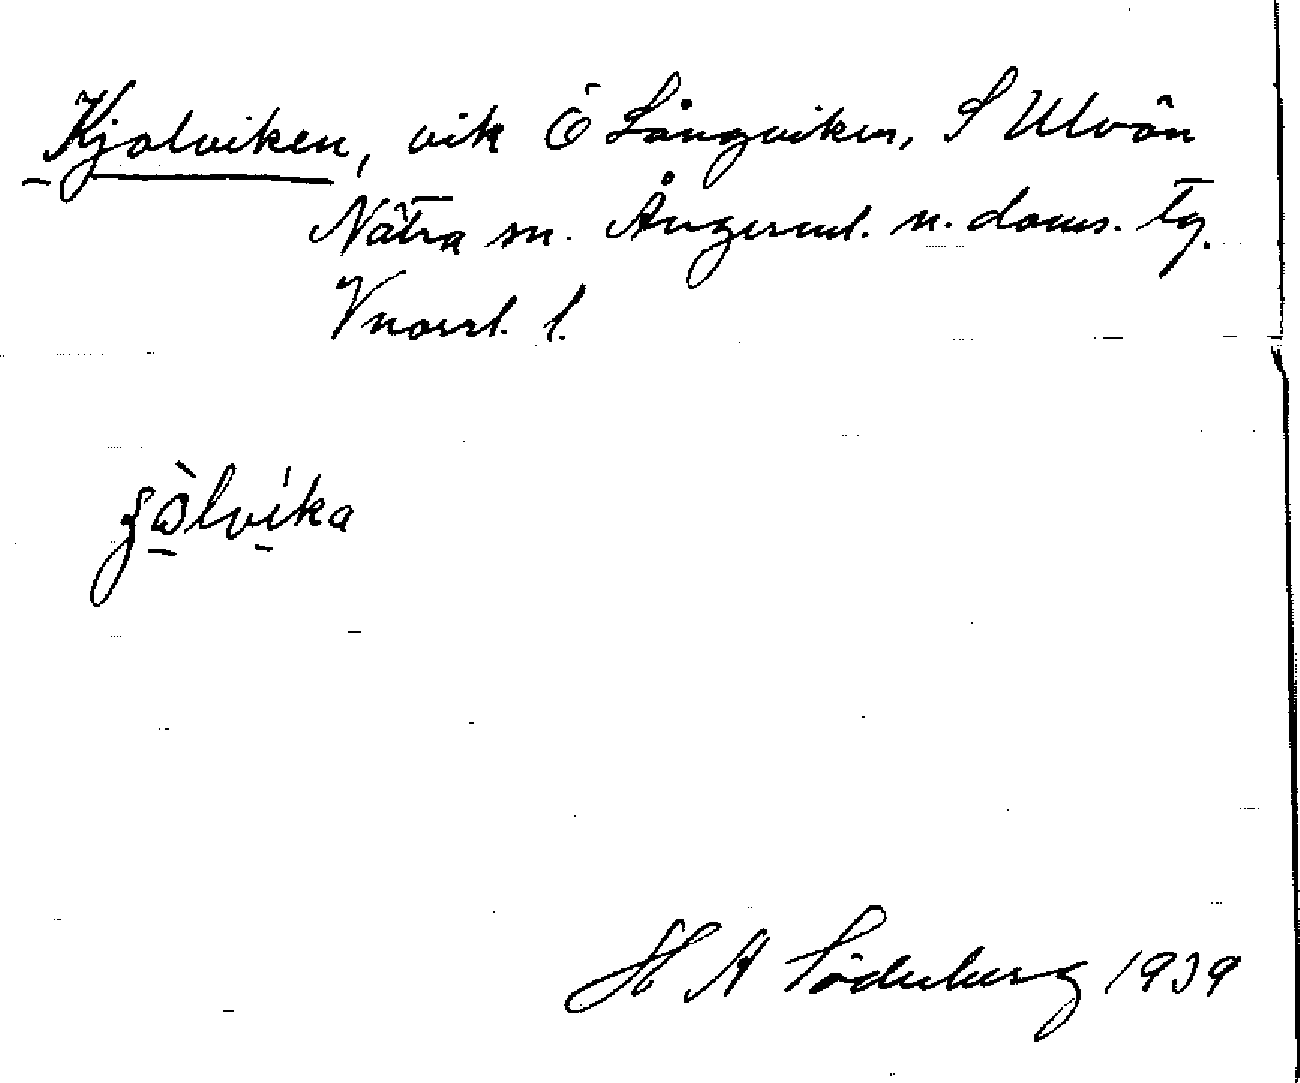 Kjolviken, vik Ö Långviken, S Ulvön
Nätra sn. Ångerml. n. doms. tg.
Vnorrl. l.
H A Söderberg 1939